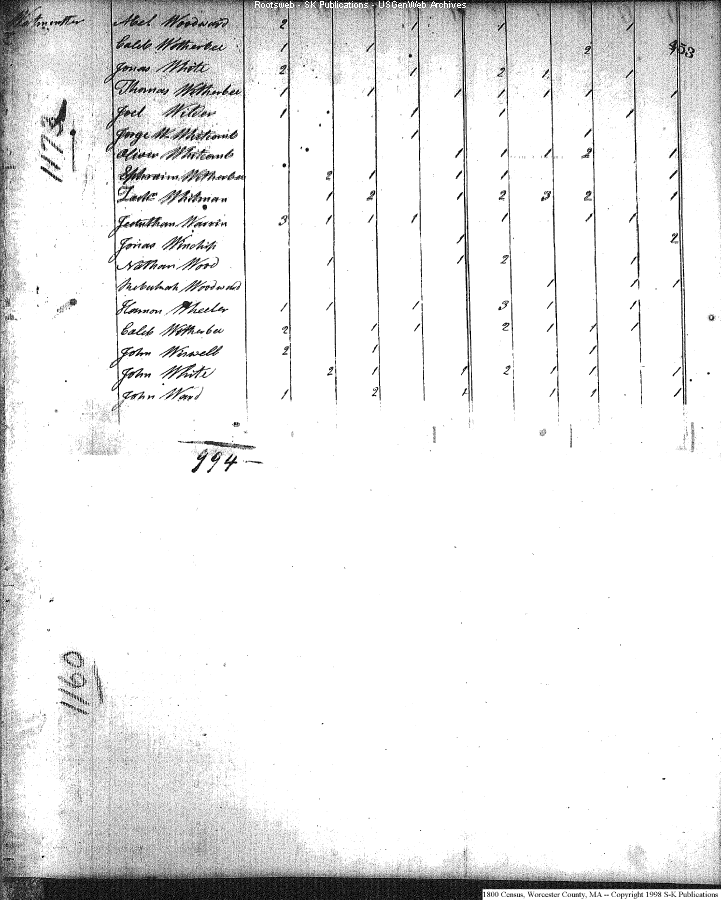 Rootsweb - SK Publications - USGenWeb Archives
Westminster Abel Woodward 2 1 1 1
453
Caleb Wetherbee 1 1 2
Jonas White 2 1 2 1 1
Thomas Wetherbee 1 1 1 1 1 1 1 1
Joel Wilder 1 1 1 1
Jorge W. Whitcomb 1 1
Oliver Whitcomb 1 1 1 2 1
Ephraim Wetherbee 2 1 1 1 1
Zachr Whitman 1 2 1 2 3 2 1
Jonathan Warrin 3 1 1 1 1 1 1
Jonas Winship 1 2
Nathan Wood 1 1 2 1
Woodward 1 1 1
Harmon Wheeler 1 1 1 3 1 1
Caleb Wetherbee 2 1 1 2 1 1 1
John Worwell 2 1 1
John White 2 1 1 2 1 1 1
John Ward 1 2 1 1 1 1
1173
994-
1160
1800 Census, Worcester County, MA -- Copyright 1998 S-K Publications